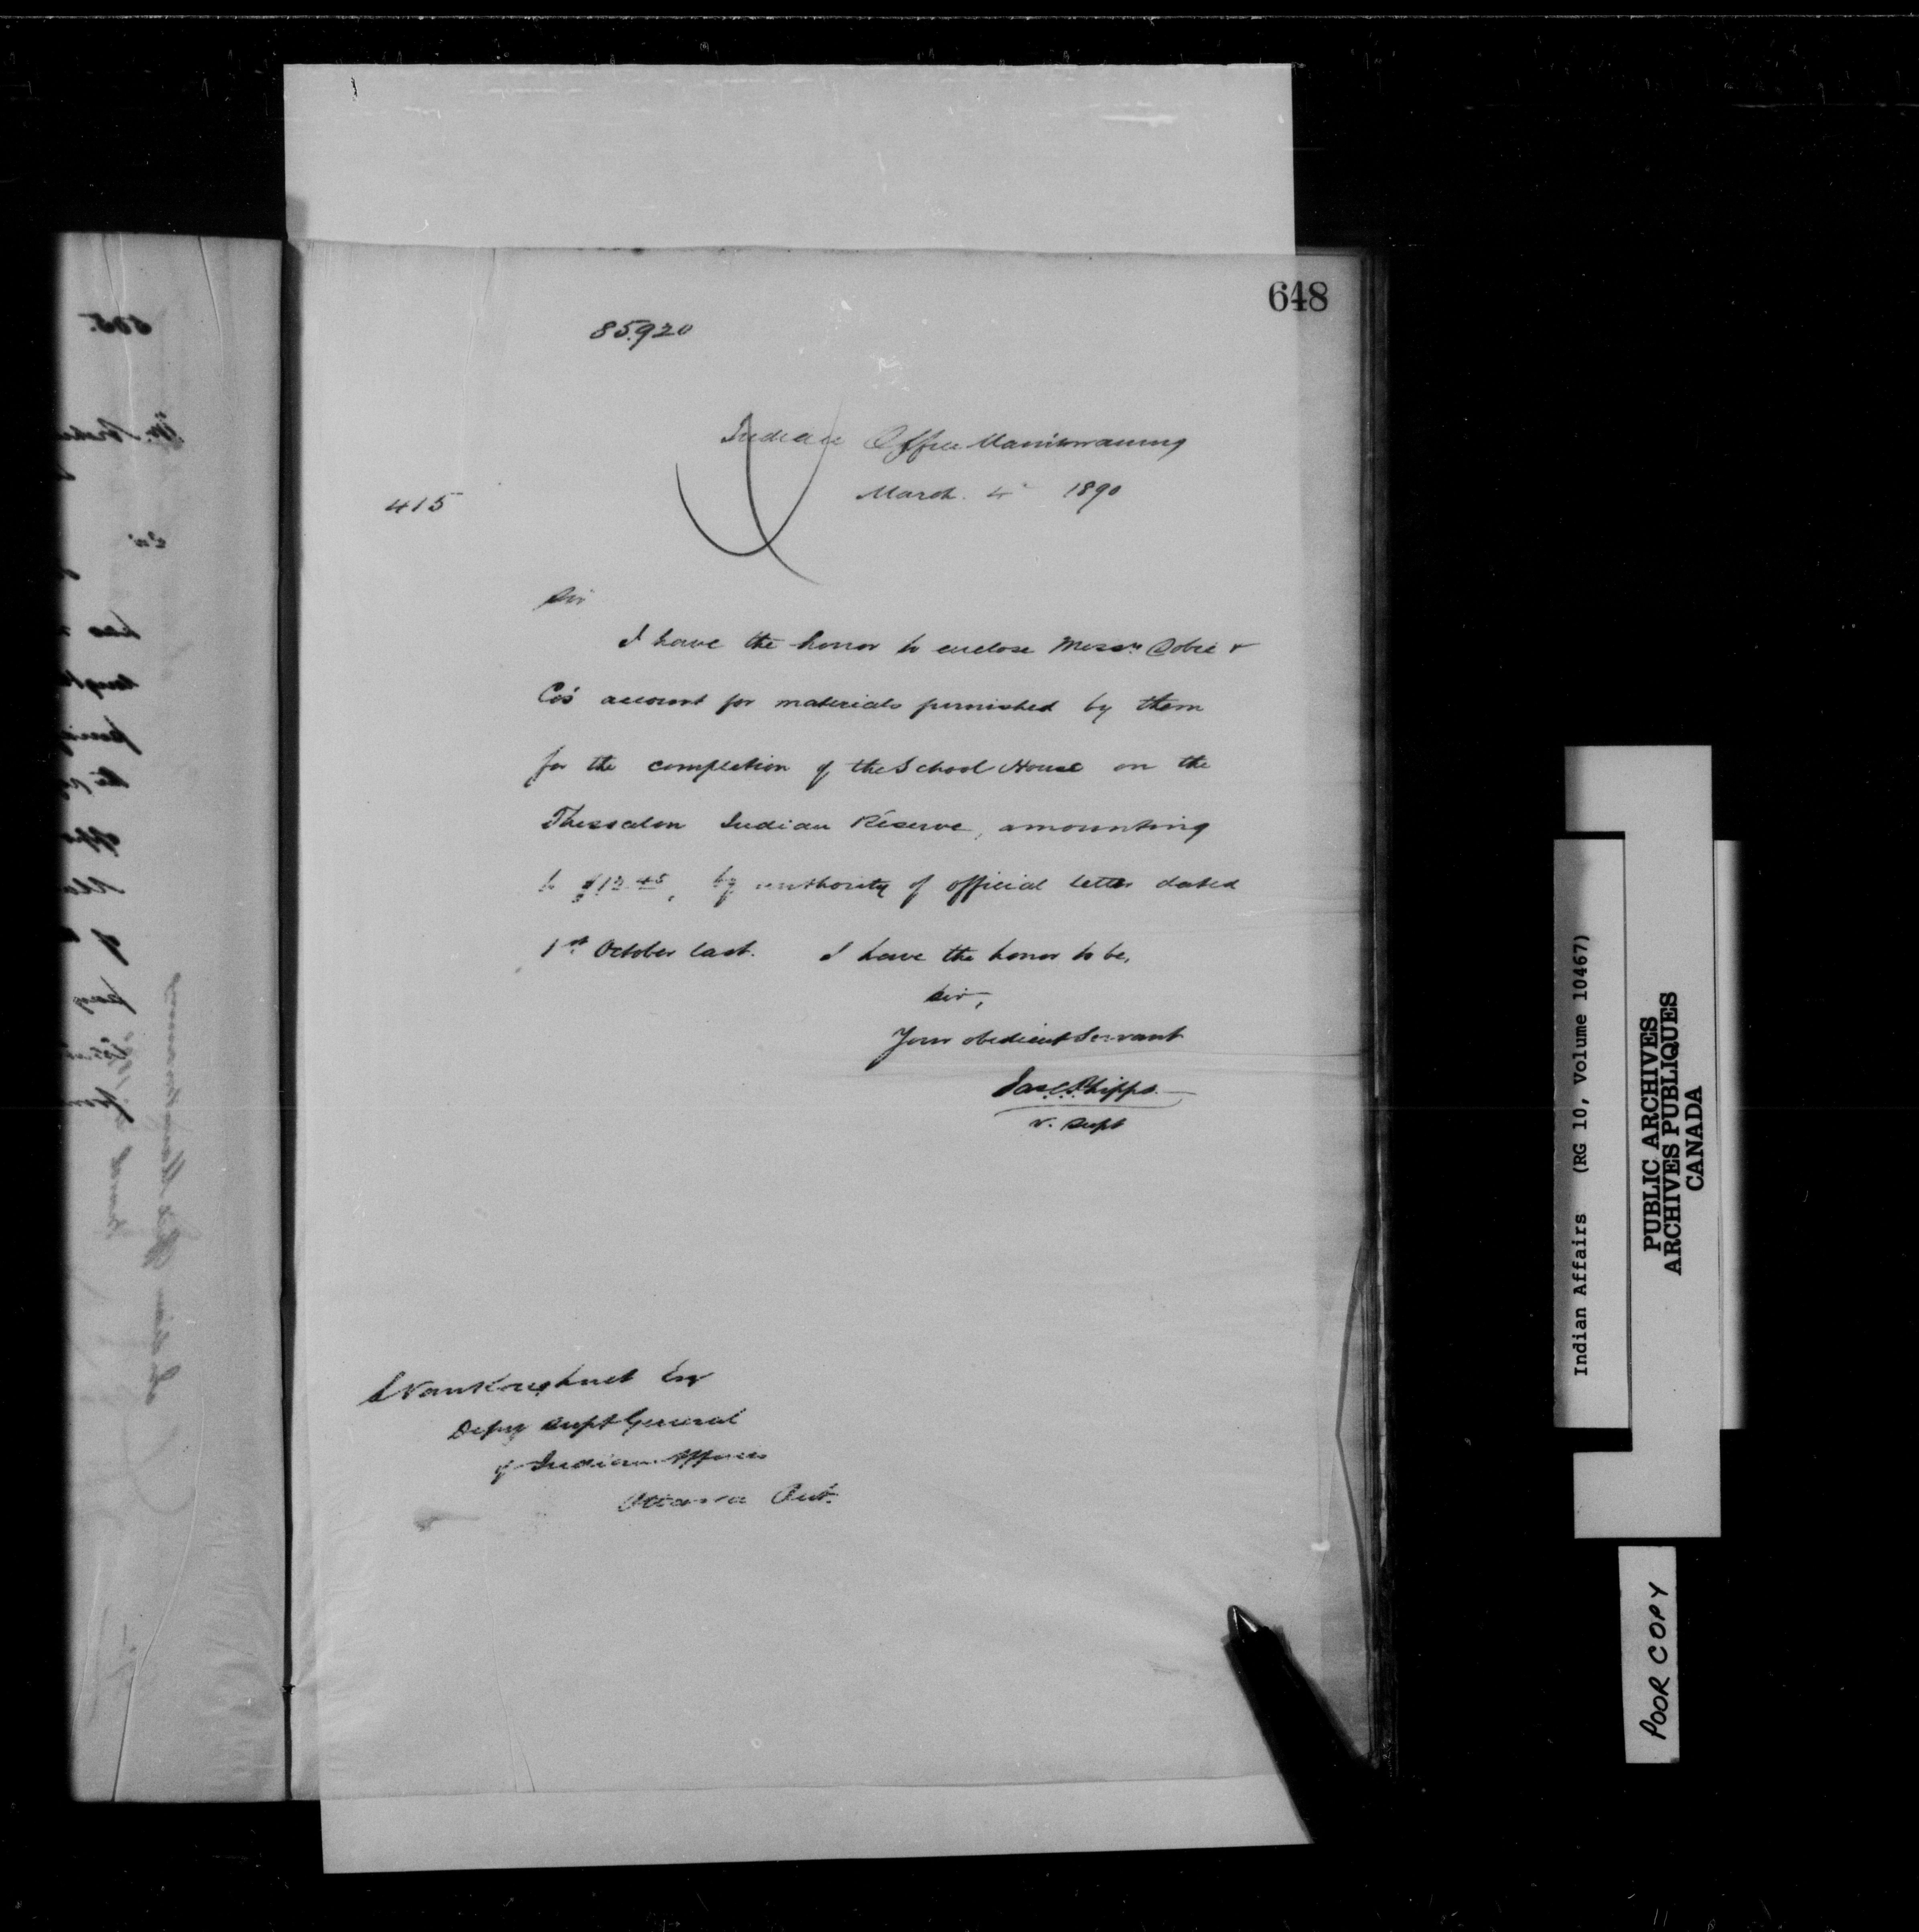 648
85.920
Indian Office Manitowaning
March 4 1890
415
Sir
I have the honor to enclose Messrs Dobie &
Co's account for materials furnished by them
for the completion of the School House on the
Thessalon Indian Reserve, amounting
to $12.45, by authority of official letter dated
1st October last. I have the honor to be,
Sir,
Your obedient Servant
Jas. C. Phipps
V. Supt
L VanKoughnet Esq
Depy Supt General
of Indian Affairs
Ottawa Ont.
Indian Affairs (RG 10, Volume 10467)
PUBLIC ARCHIVES
ARCHIVES PUBLIQUES
CANADA
POOR COPY